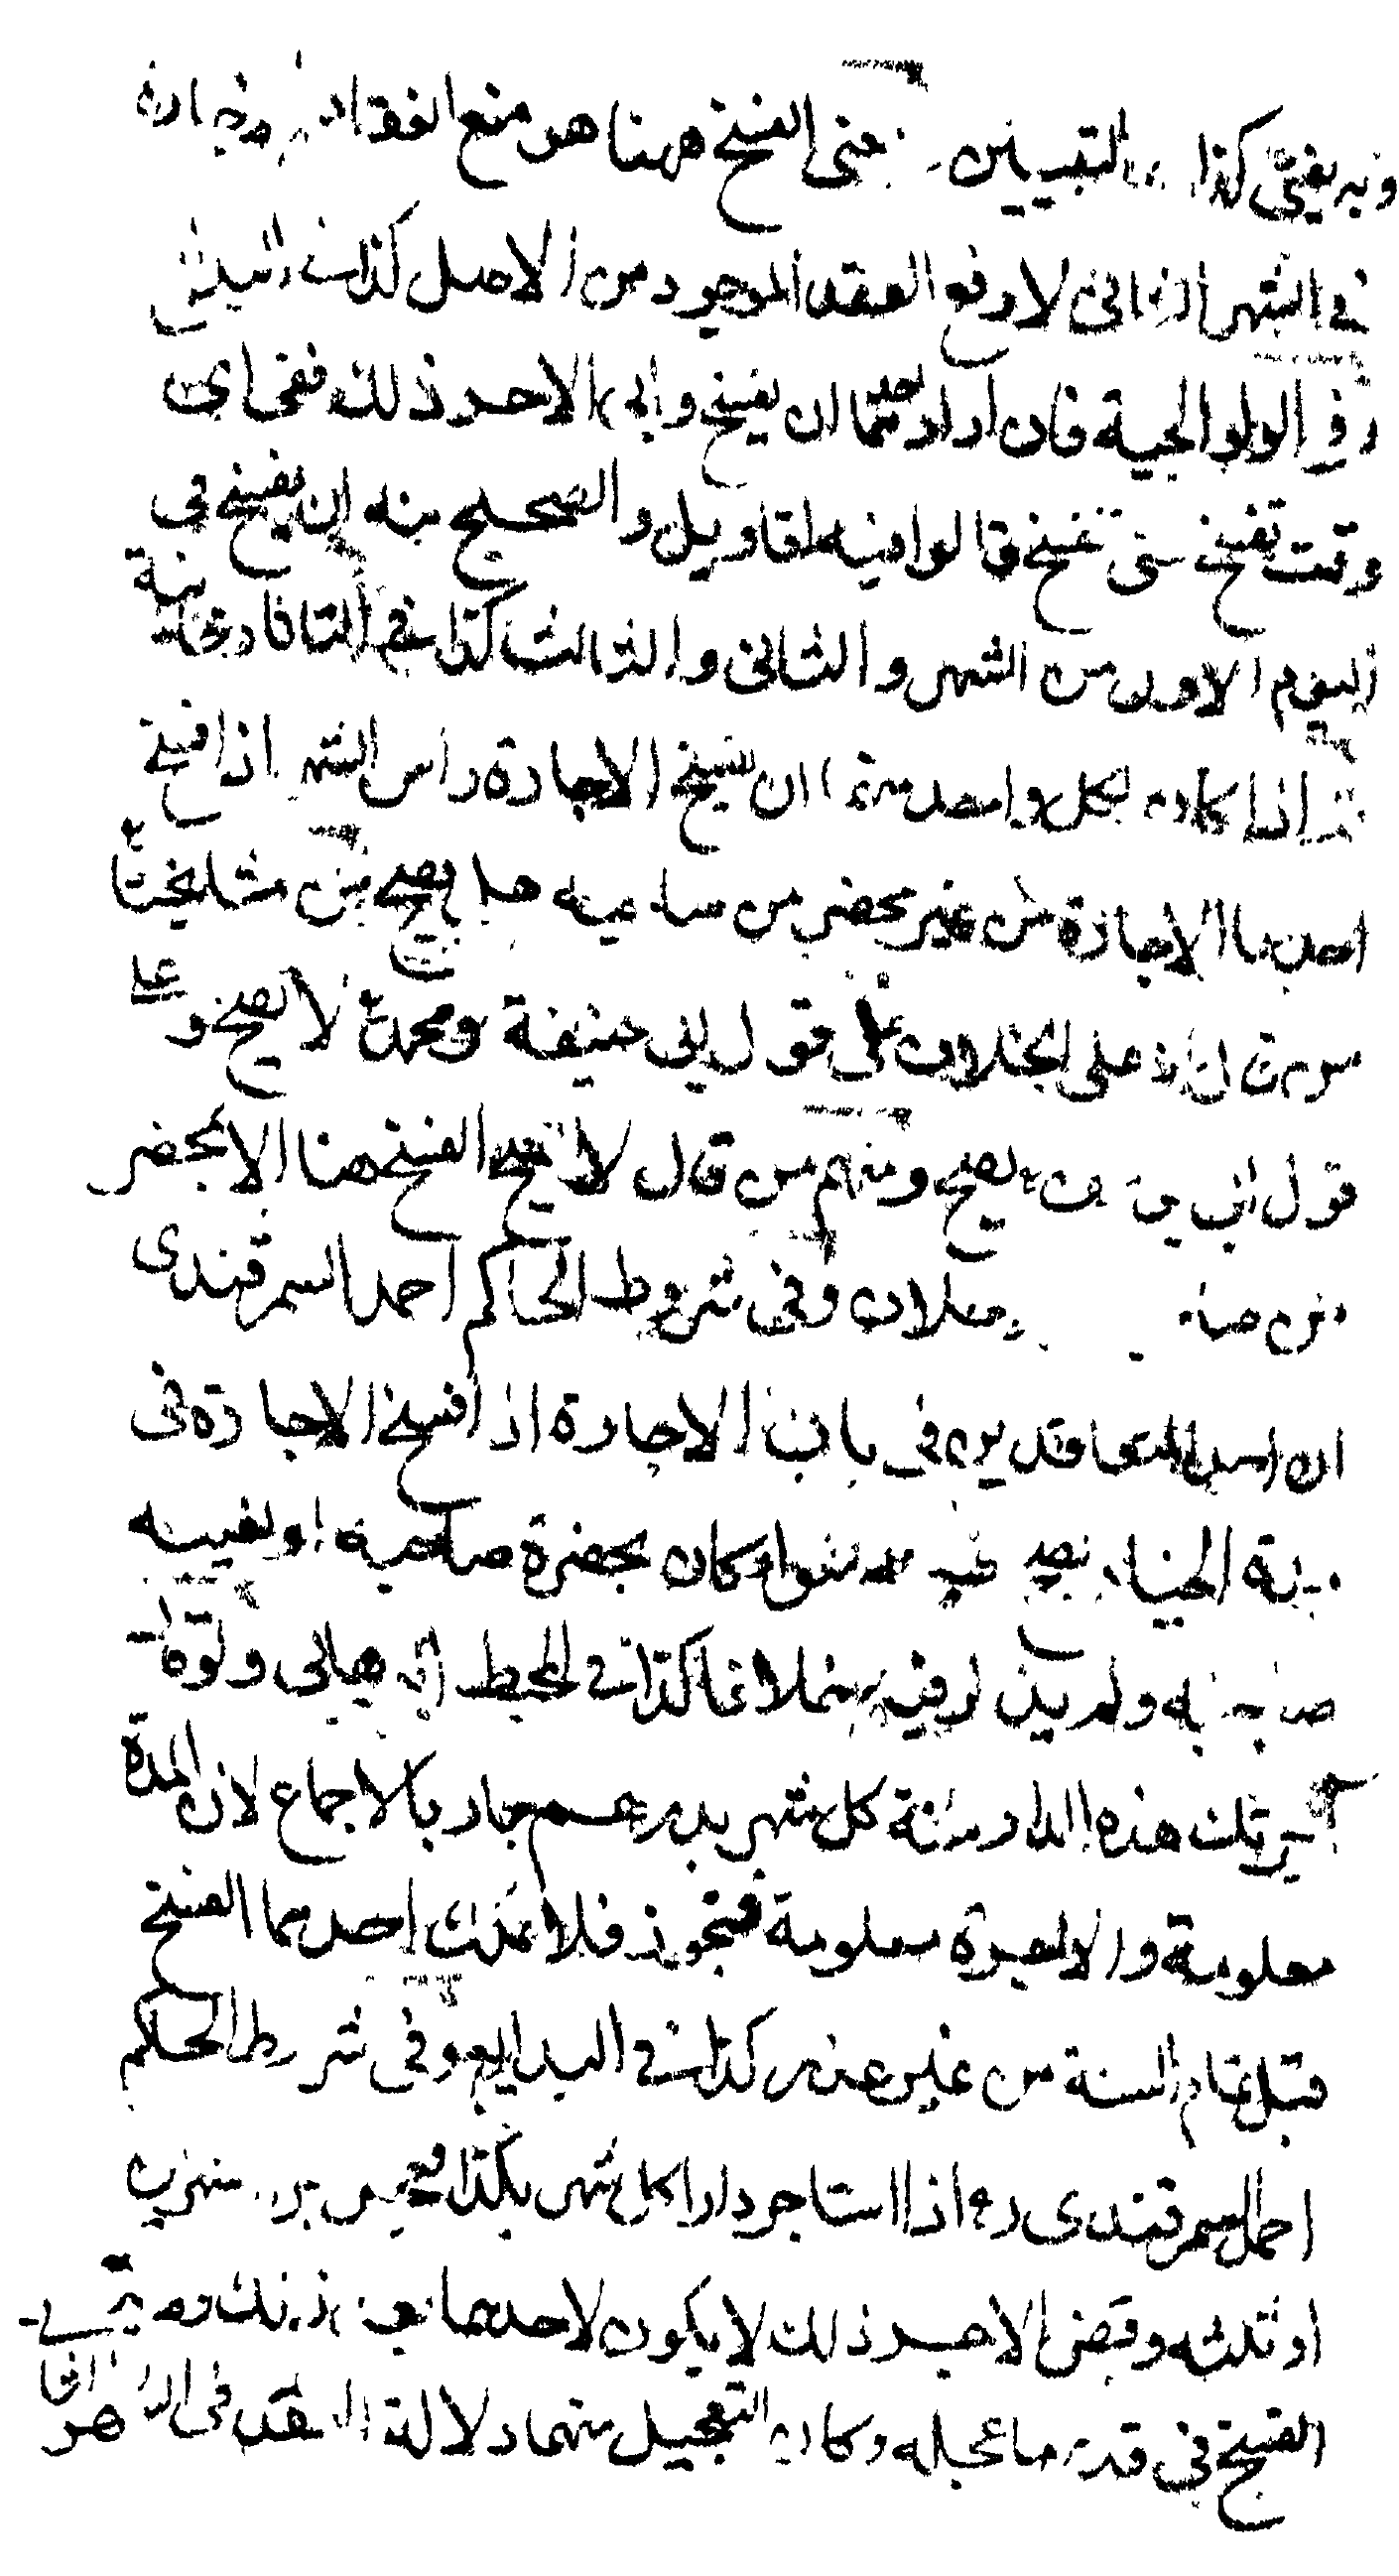 وبه يفتى كذا التبيين معنى الفسخ ههنا هو منع انعقاد الاجارة
في الشهر الثاني لا رفع العقد الموجود من الاصل كذا في
وفي الولوالجية فان اراد احدهما ان يفسخ وابى الاخر ذلك ففي اي
وقت تفسخ حتى تنفسخ قالوا فيه اقاويل والصحيح منه ان يفسخ في
اليوم الاول من الشهر والثاني والثالث كذا في التاتارخانية
ثم اذا كان لكل واحد منهما ان يفسخ الاجارة راس الشهر اذا فسخ
احدهما الاجارة من غير محضر من صاحبه هل يصح من مشايخنا
من قال على الخلاف على قول ابي حنيفة ومحمد لا يصح وعلى
قول ابي يوسف يصح ومنهم من قال لا يصح الفسخ هنا الا بمحضر
من صاحبه بلا خلاف وفي شروط الحاكم احمد السمرقندي
ان احد المتعاقدين في باب الاجارة اذا فسخ الاجارة في
مدة الخيار يصح فسخه سواء كان بحضرة صاحبه او بغيبة
صاحبه ولم يذكر فيه خلافا كذا في المحيط البرهاني ولو قال
آجرتك هذه الدار سنة كل شهر بدرهم جاز بالاجماع لان المدة
معلومة والاجرة معلومة فتجوز فلا يملك احدهما الفسخ
قبل تمام السنة من غير عذر كذا في البدايع وفي شروط الحاكم
احمد السمرقندي ره اذا استاجر دارا كل شهر بكذا شهرين
او ثلثه وقبض الاجر ذلك لا يكون لاحدهما بعد ذلك
الفسخ في قدر ما عجله وكان التعجيل منهما دلالة العقد في